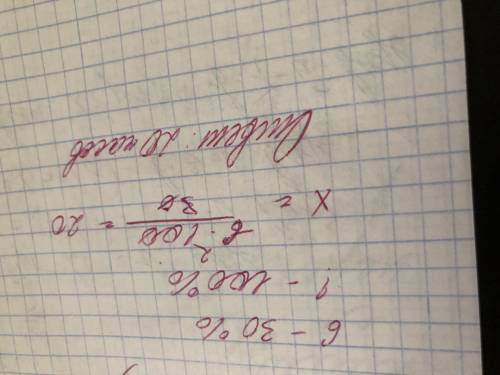 6 - 30%
? - 100%
x = 6 · 100 / 30 = 20
Ответ: 20 часов